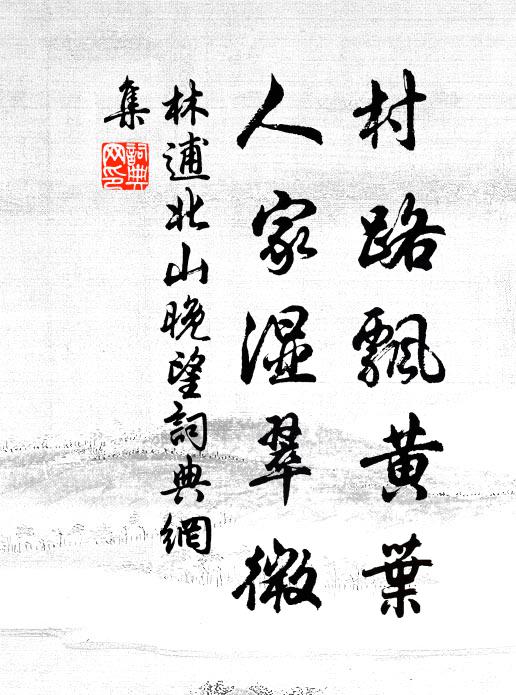 村路飄黄葉
人家湿翠微
林逋北山晚望詞典網
集
詞典网印